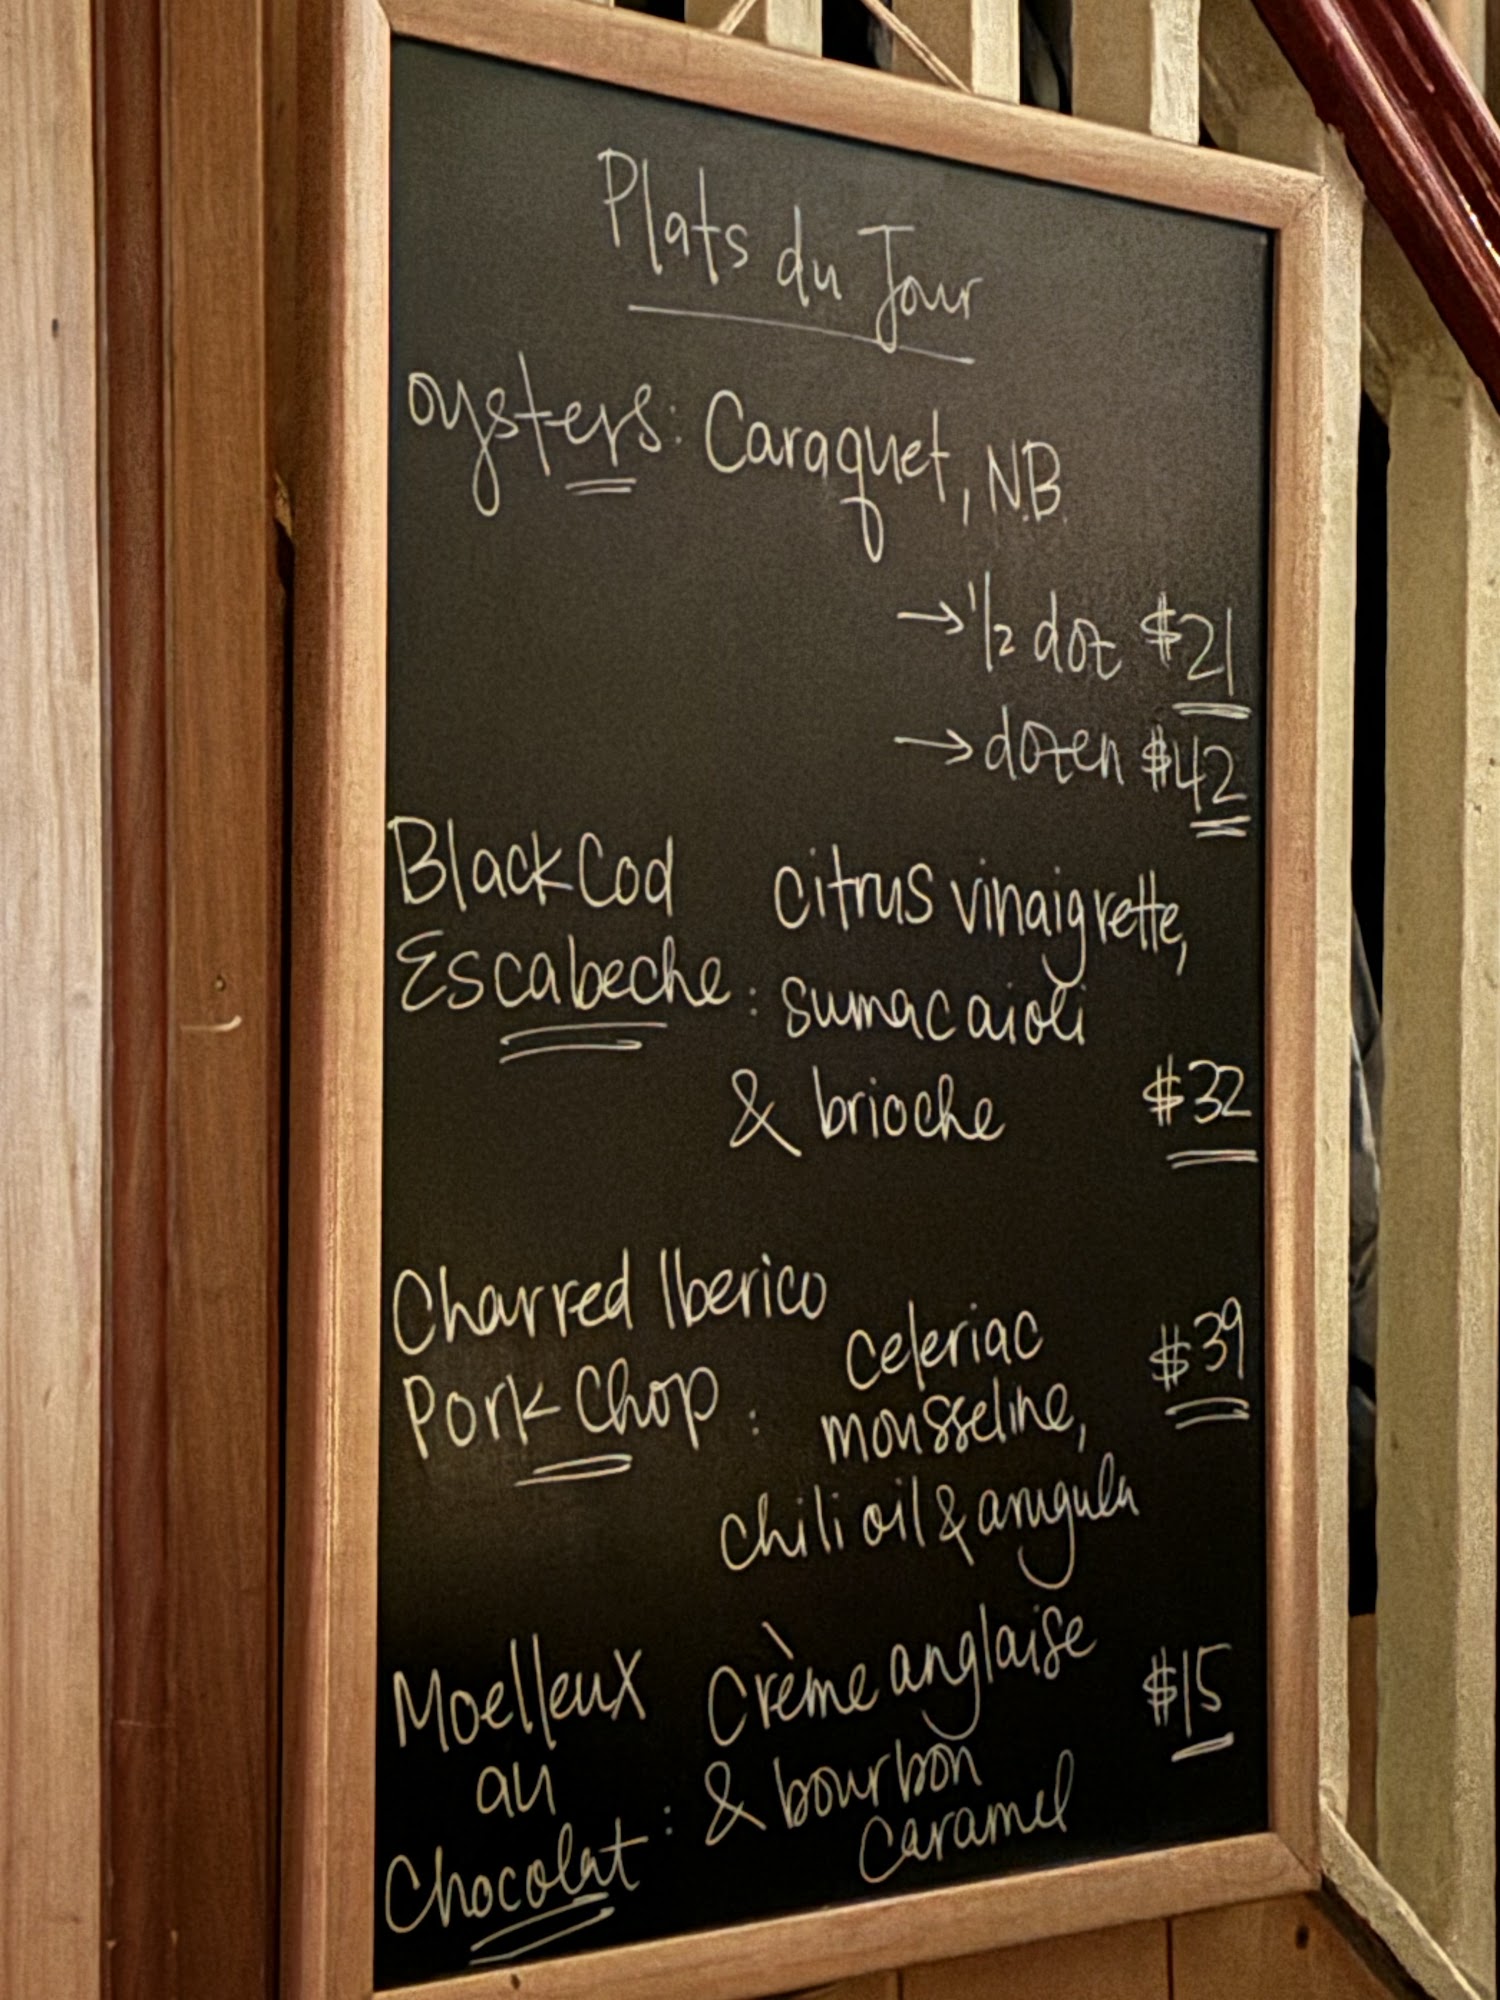 Plats du Jour
oysters: Caraquet, N.B.
→ 1/2 doz $21
→ dozen $42
Black Cod citrus vinaigrette,
Escabeche: sumac aioli
& brioche $32
Charred Iberico
celeriac $39
Pork Chop: mousseline,
chili oil & arugula
Moelleux Crème anglaise $15
au & bourbon
Chocolat: caramel